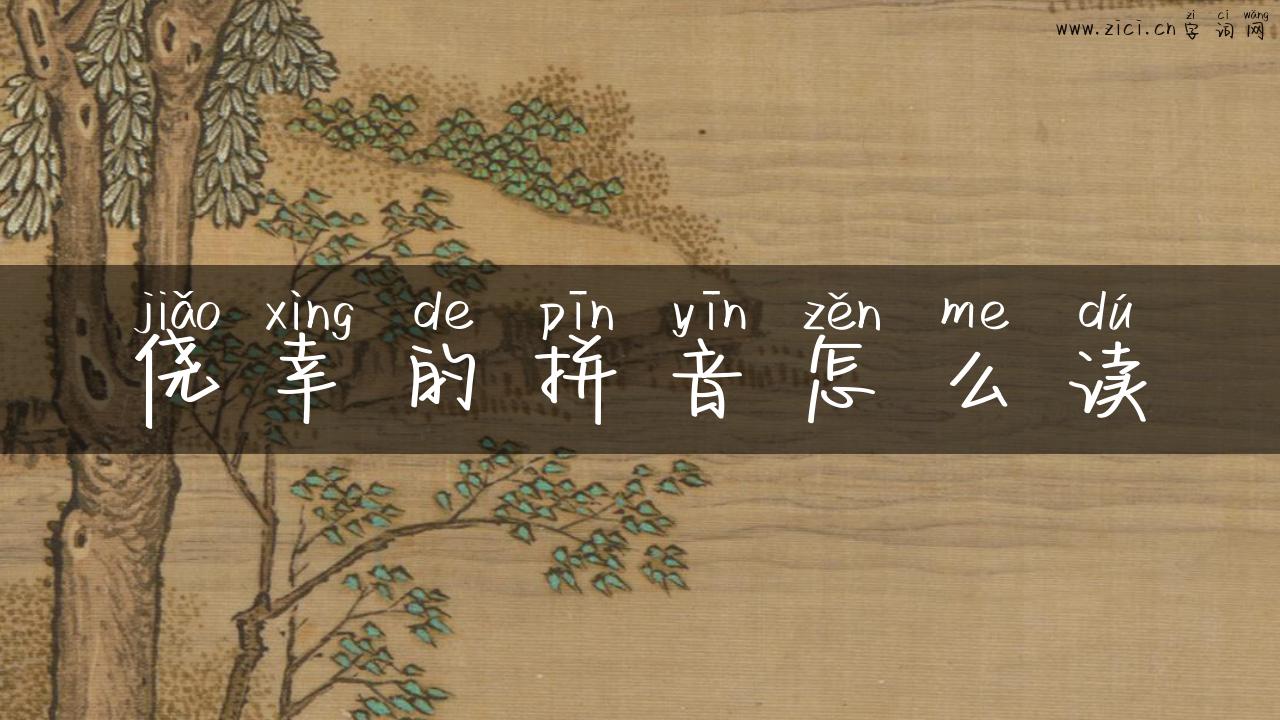 zì cí wǎng
www.zici.cn 字 词 网
jiǎo xìng de pīn yīn zěn me dú
侥 幸 的 拼 音 怎 么 读